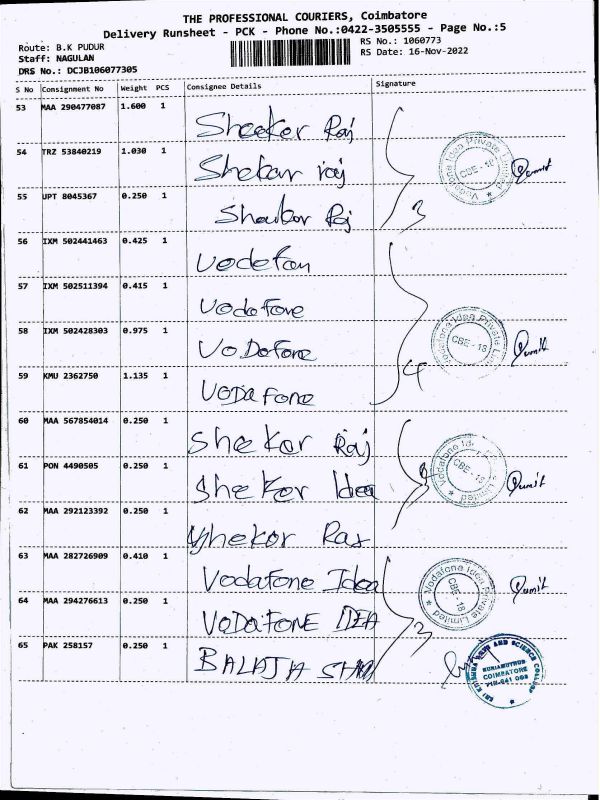 THE PROFESSIONAL COURIERS, Coimbatore
Delivery Runsheet - PCK - Phone No.:0422-3505555 - Page No.:5
Route: B.K PUDUR
RS No.: 1060773
Staff: NAGULAN
RS Date: 16-Nov-2022
DRS No.: DCJB106077305
S No Consignment No Weight PCS Consignee Details Signature
53 MAA 290477087 1.600 1 Sheeker Raj
54 TRZ 53840219 1.030 1 Shekar raj
55 UPT 8045367 0.250 1 Raj
3
56 IXM 502441463 0.425 1 Vodefon
57 IXM 502511394 0.415 1 Vodofone
58 IXM 502428303 0.975 1 VoDofone
59 KMU 2362750 1.135 1 VODAfone
4
60 MAA 567854014 0.250 1 Shekor Raj
61 PON 4490505 0.250 1 Shekor Idea
62 MAA 292123392 0.250 1 Shekor
63 MAA 282726909 0.410 1 Vodafone Idea
64 MAA 294276613 0.250 1 VODAfONE IDEA
3
65 PAK 258157 0.250 1
Vodafone Idea Private Limited
CBE - 18
Vodafone Idea Private Limited
CBE - 18
Vodafone Idea Private Limited
CBE - 18
Vodafone Idea Private Limited
CBE - 18
COIMBATORE